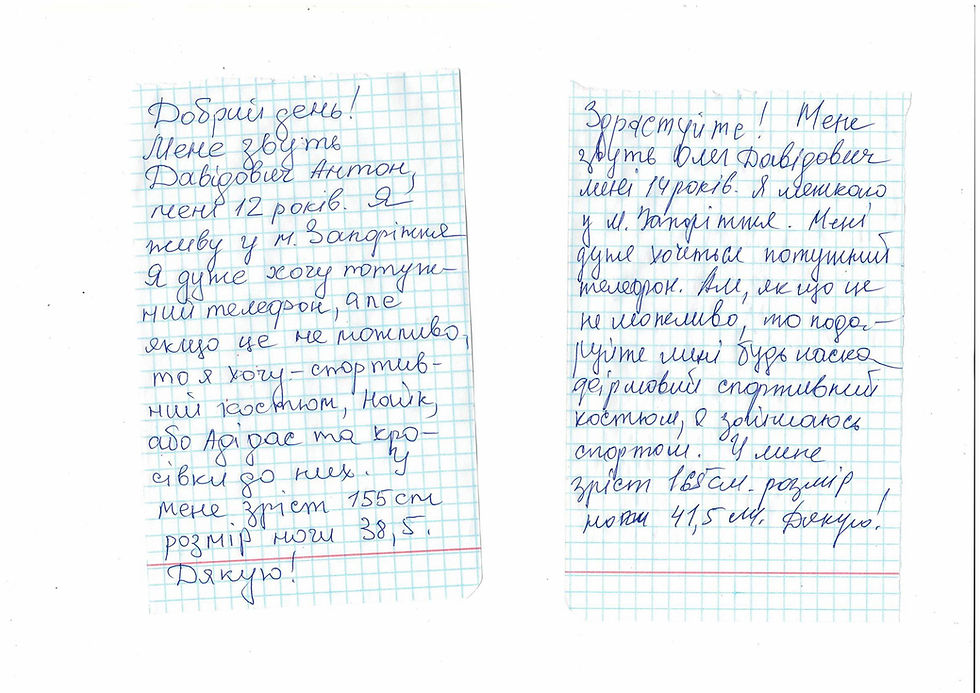 Добрий день!
Мене звуть
Давідович Антон,
мені 12 років. Я
живу у м. Запоріжжя
Я дуже хочу потуж-
ний телефон, але
якщо це не можливо,
то я хочу - спортив-
ний костюм, Найк,
або Адідас та кро-
сівки до них. У
мене зріст 155 см
розмір ноги 38,5.
Дякую!
Здрастуйте! Мене
звуть Олег Давідович
мені 14 років. Я мешкаю
у м. Запоріжжя. Мені
дуже хочеться потужний
телефон. Але, якщо це
не можливо, то пода-
руйте мені будь ласка
фірмовий спортивний
костюм, я займаюсь
спортом. У мене
зріст 165 см. розмір
ноги 41,5 м. Дякую!